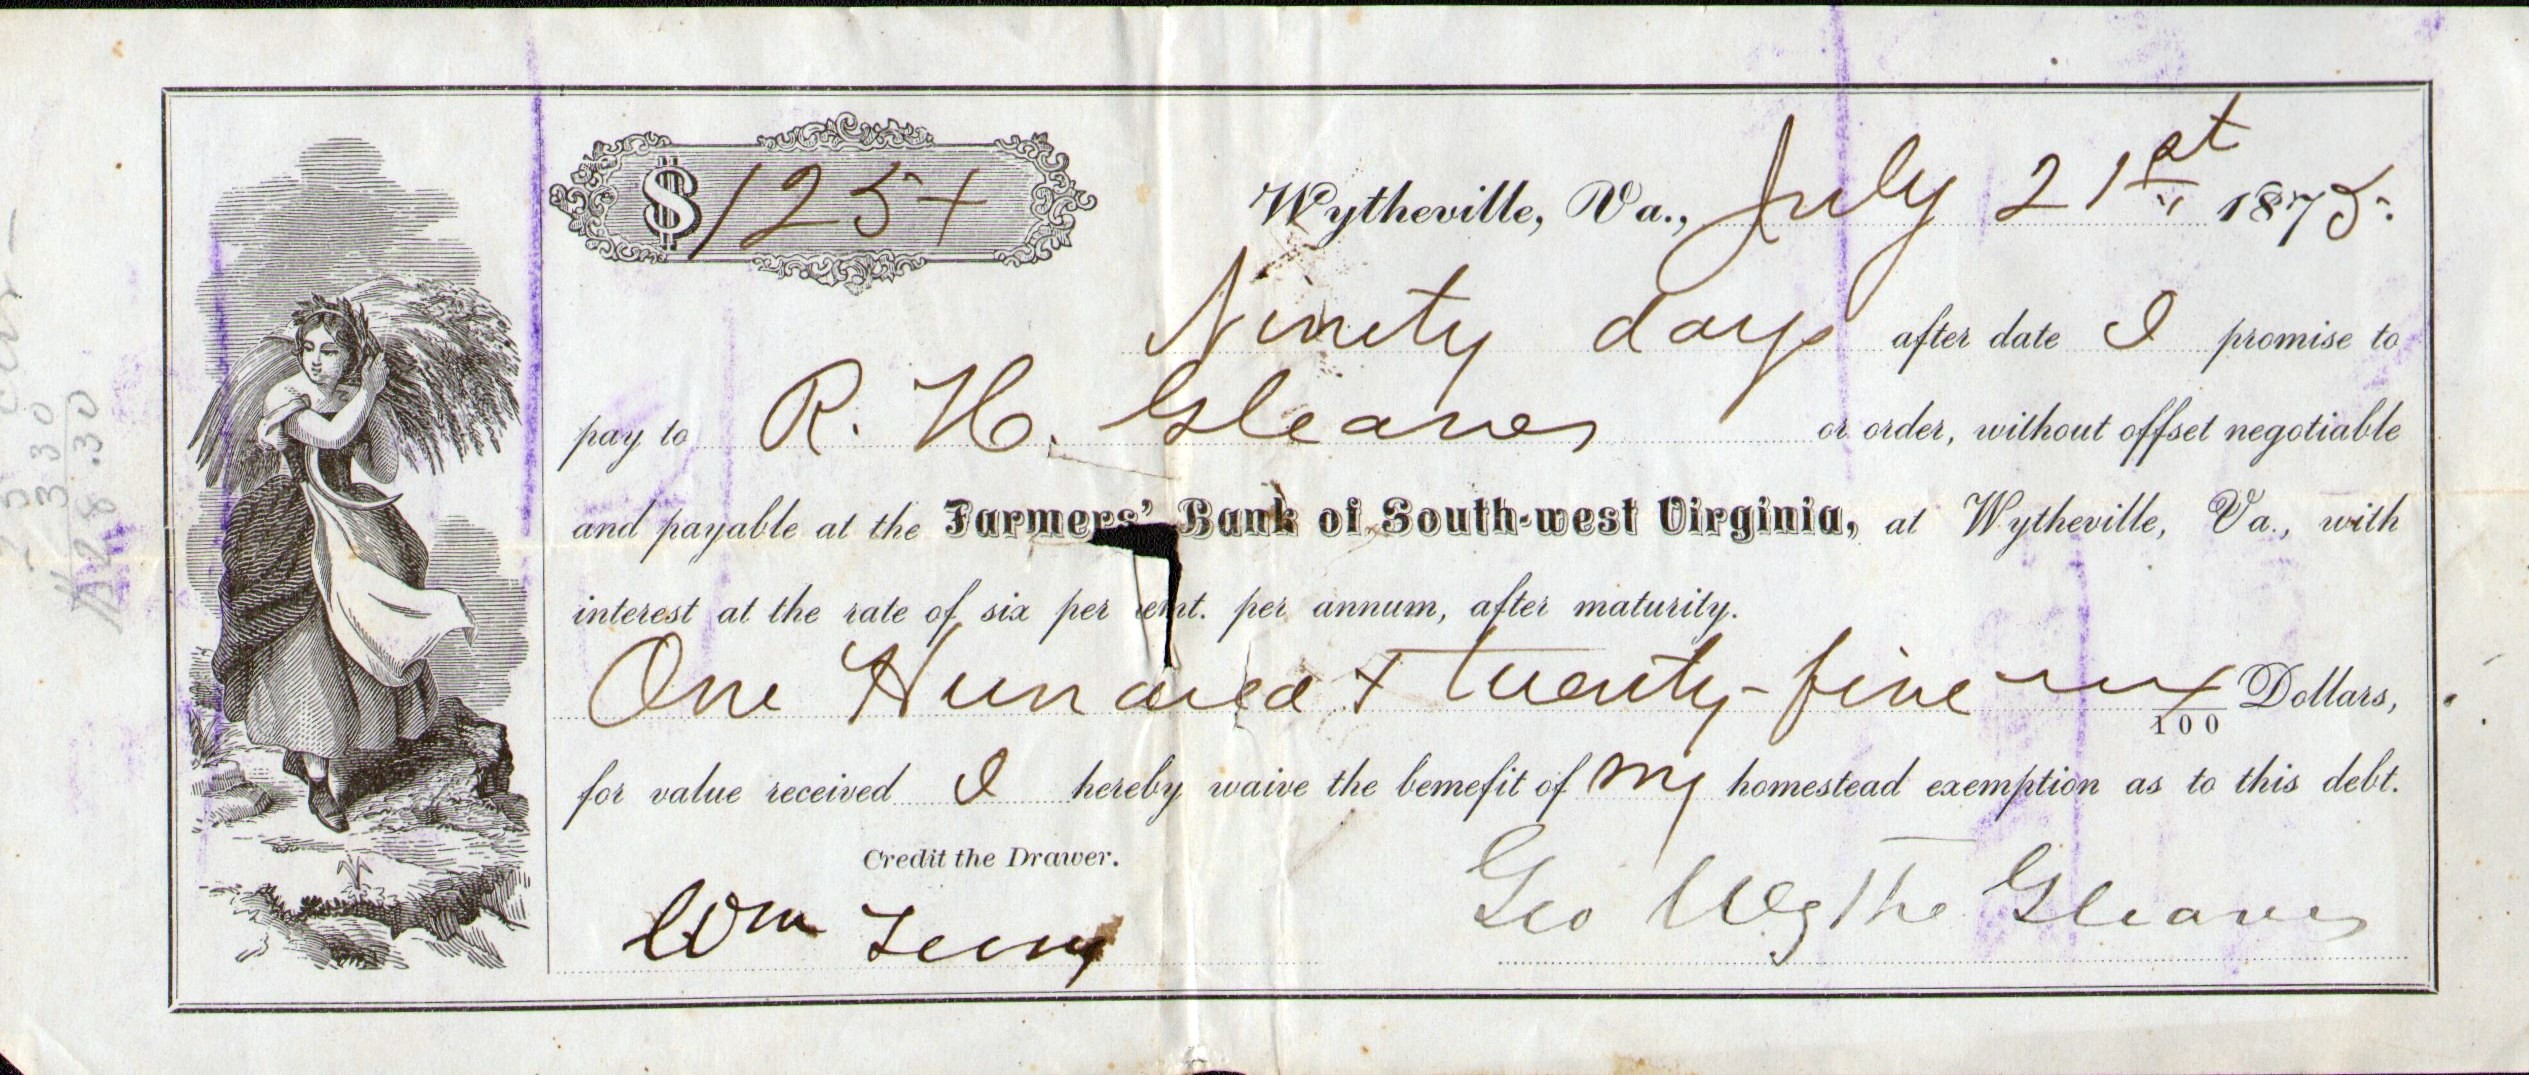 $125+
Wytheville, Va., July 21st 1875.
Ninety days after date I promise to
pay to R. H. Gleaves or order, without offset negotiable
and payable at the Farmers' Bank of South-west Virginia, at Wytheville, Va., with
interest at the rate of six per cent. per annum, after maturity.
One Hundred + twenty-five x/100 Dollars,
for value received I hereby waive the bemefit of my homestead exemption as to this debt.
Credit the Drawer.
Wm Terry
Geo Wythe Gleaves
330